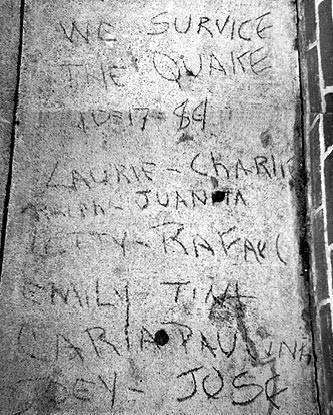 WE SURVICE
THE QUAKE
10-17-89
LAURIE - CHARLIE
RALPH - JUANITA
LETTY - RAFAEL
EMILY - TINA
CARLA - PAULINA
JOEY - JOSE